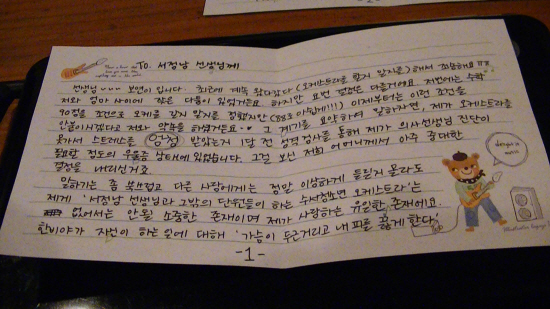 TO. 서정남 선생님께
선생님~~~ 보영이 입니다. 최근에 계속 왔다갔다 (오케스트라를 할지 말지로) 해서 죄송해요 ㅠㅠ
저와 엄마 사이에 작은 다툼이 있었거든요. 하지만 요번 결정은 다를거에요. 저번에는 수학
90점을 조건으로 오케를 갈지 말지를 정했지만 (88로 아쉽게!!!) 이제부터는 이런 조건을
안붙이시겠다고 저와 약속을 하셨거든요~ 그 계기를 요약하여 말하자면, 제가 오케스트라를
못가서 스트레스를 엄청 받았는게 1달 전 성격검사를 통해 제가 의사선생님 진단이
필요할 정도의 우울증 상태에 있었습니다. 그걸 보신 저희 어머니께서 아주 중대한
결정을 내리신거죠.
말하기는 좀 부끄럽고 다른 사람에게는 정말 이상하게 들릴지 몰라도
제게 '서정남 선생님과 그밖의 단원들이 하는 수서청소년 오케스트라'는
없어서는 안될 소중한 존재이며 제가 사랑하는 유일한 존재에요.
한비야가 자신이 하는 일에 대해 '가슴이 두근거리고 내 피를 끓게 한다'
-1-